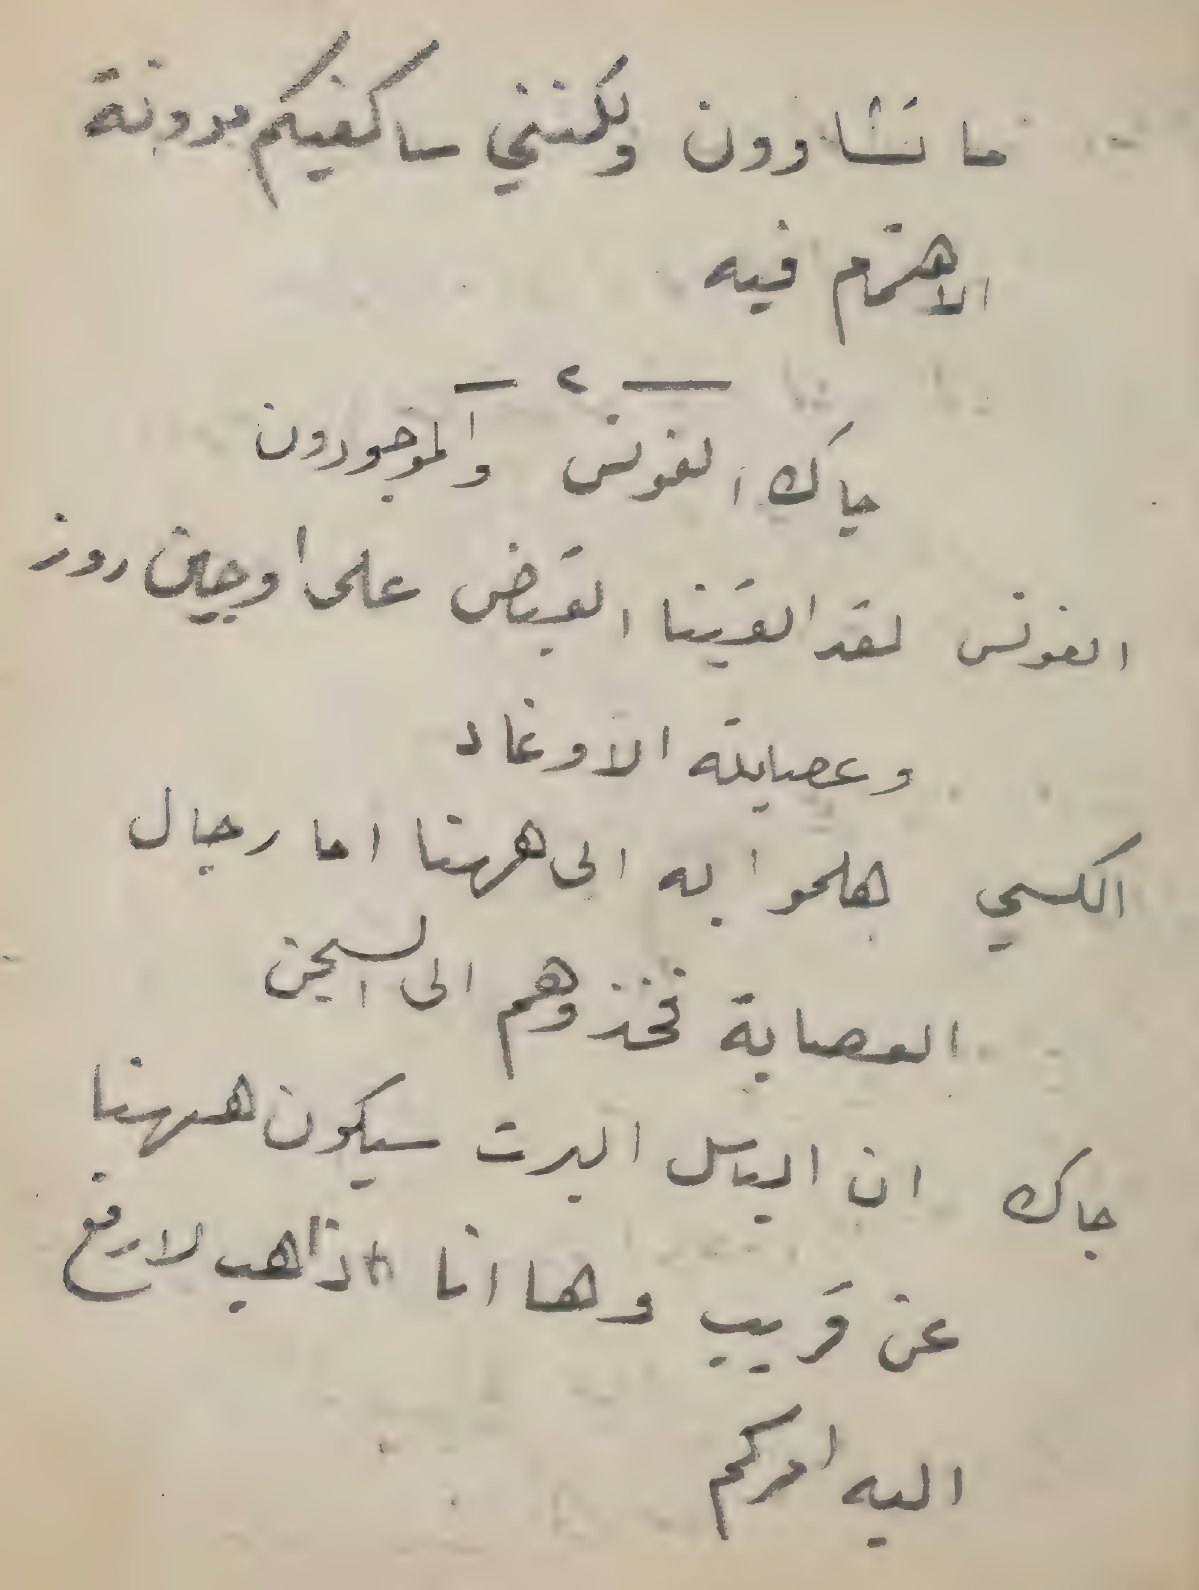 ما تشاوون ولكنني ساكفيكم مرونة
الاهتمام فيه
— ٢ —
جاك الفونس والموجودون
الفونس لقد القينا القبض على اوجين روز
وعصابته الاوغاد
الكسي هلموا به الى ههنا اما رجال
العصابة فخذوهم الى السجن
جاك ان الباس البرت سيكون ههنا
عن قريب وها انا ذاهب لارفع
اليه امركم